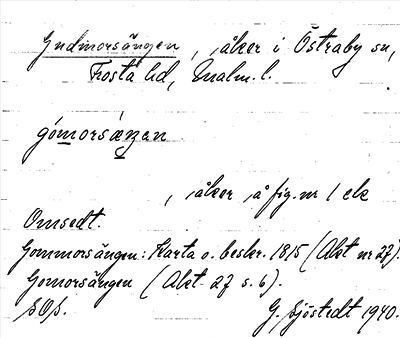 Gudmorsängen, åker i Östraby sn,
Frosta hd, Malm. l.
gómorsæŋen
, åker å fig. nr 1 ek
Omsedt.
Gommorsängen: Karta o. beskr. 1815 (Akt nr 27).
Gomorsängen (Akt 27 s. 6).
G. Sjöstedt 1940.